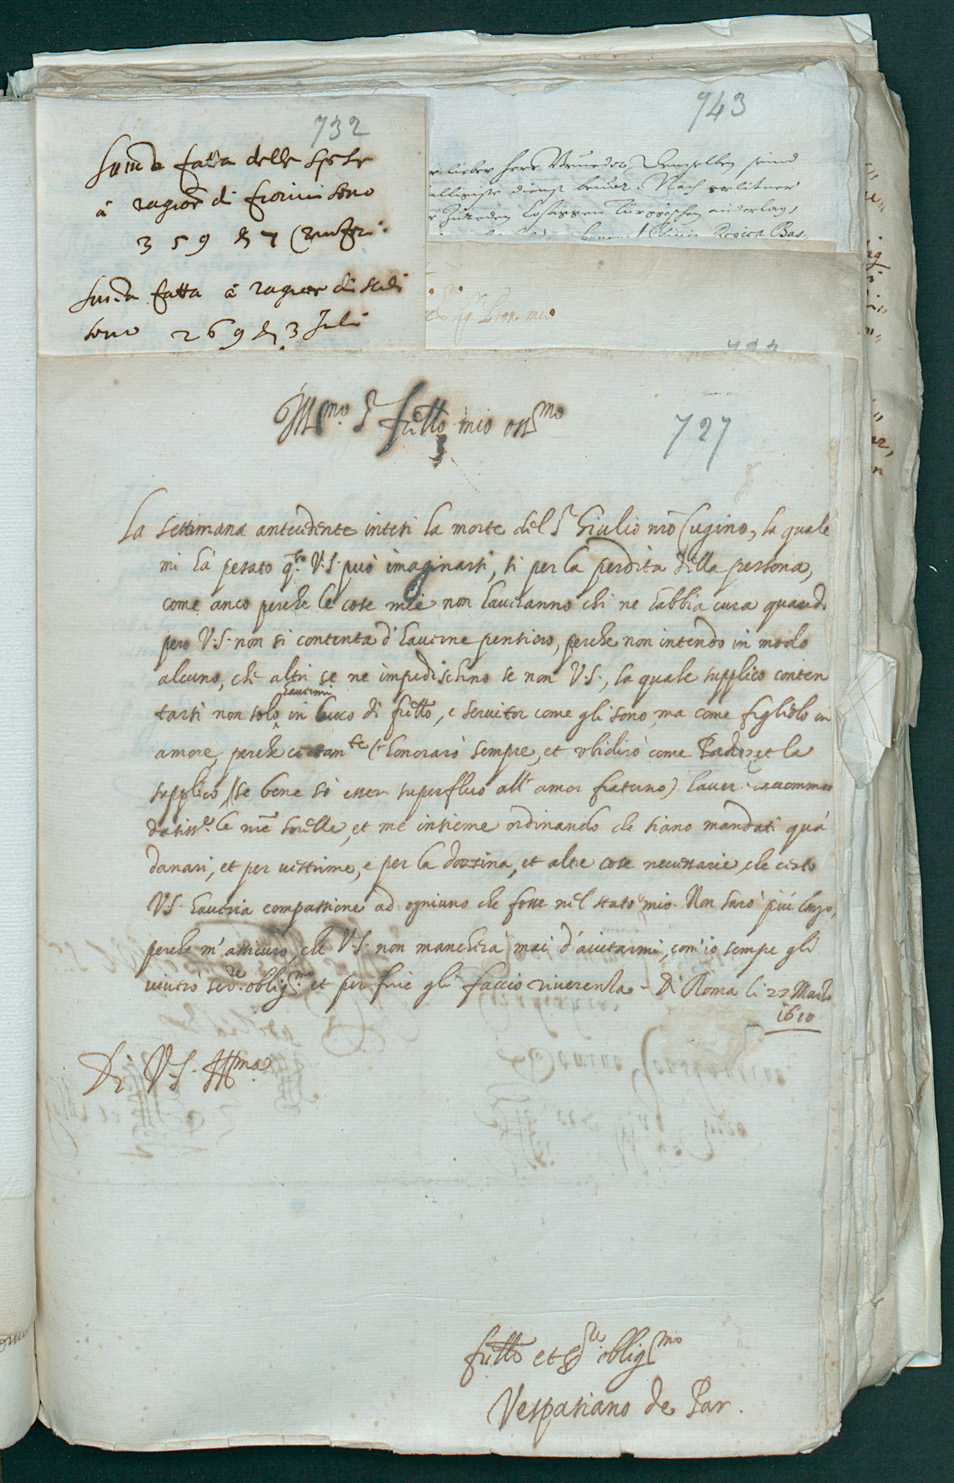 732
Suma fatta delle spese
à ragione di fiorini sono
359 di 7
Suma fatta à ragione di scudi
sono 269 di 3 Juli
943
lieber herr
dienst Nach
727
Ill.mo S.r fr̃ello mio oss.mo
La settimana antecedente intesi la morte del S.r Giulio nr̃o Cugino, la quale
mi hà pesato q.to V.S. può imaginarsi, si per la perdita della persona,
come anco perche le cose mie non haveranno chi ne habbia cura quando
pero V.S. non si contenta d'haverne pensiero, perche non intendo in modo
alcuno, che altri se ne impedischino se non V.S., la quale supplico conten
tarsi non solo havermi in luoco di fr̃ello, e servitor come gli sono, ma come figliolo in
amore, perche l'honorarò sempre, et ubidirò come Padre, et la
supplico (se bene sò esser superfluo all'amor fraterno) haver raccomman
datiss.e le mie sorelle, et me insieme ordinando che siano mandati quà
danari, et per vestirme, e per la dozzina, et altre cose necessarie, che certo
V.S. haveria compassione ad ogniuno che fosse nel stato mio. Non sarò più lungo,
perche m'assicuro che V.S. non mancherà mai d'aiutarmi, com'io sempe gli
vivero ser.re oblig.mo et per fine gli faccio riverenza. Di Roma li 27 Marzo
1610
Di V.S. Ill.ma
fr̃ello et S.re oblig.mo
Vespasiano de Par.